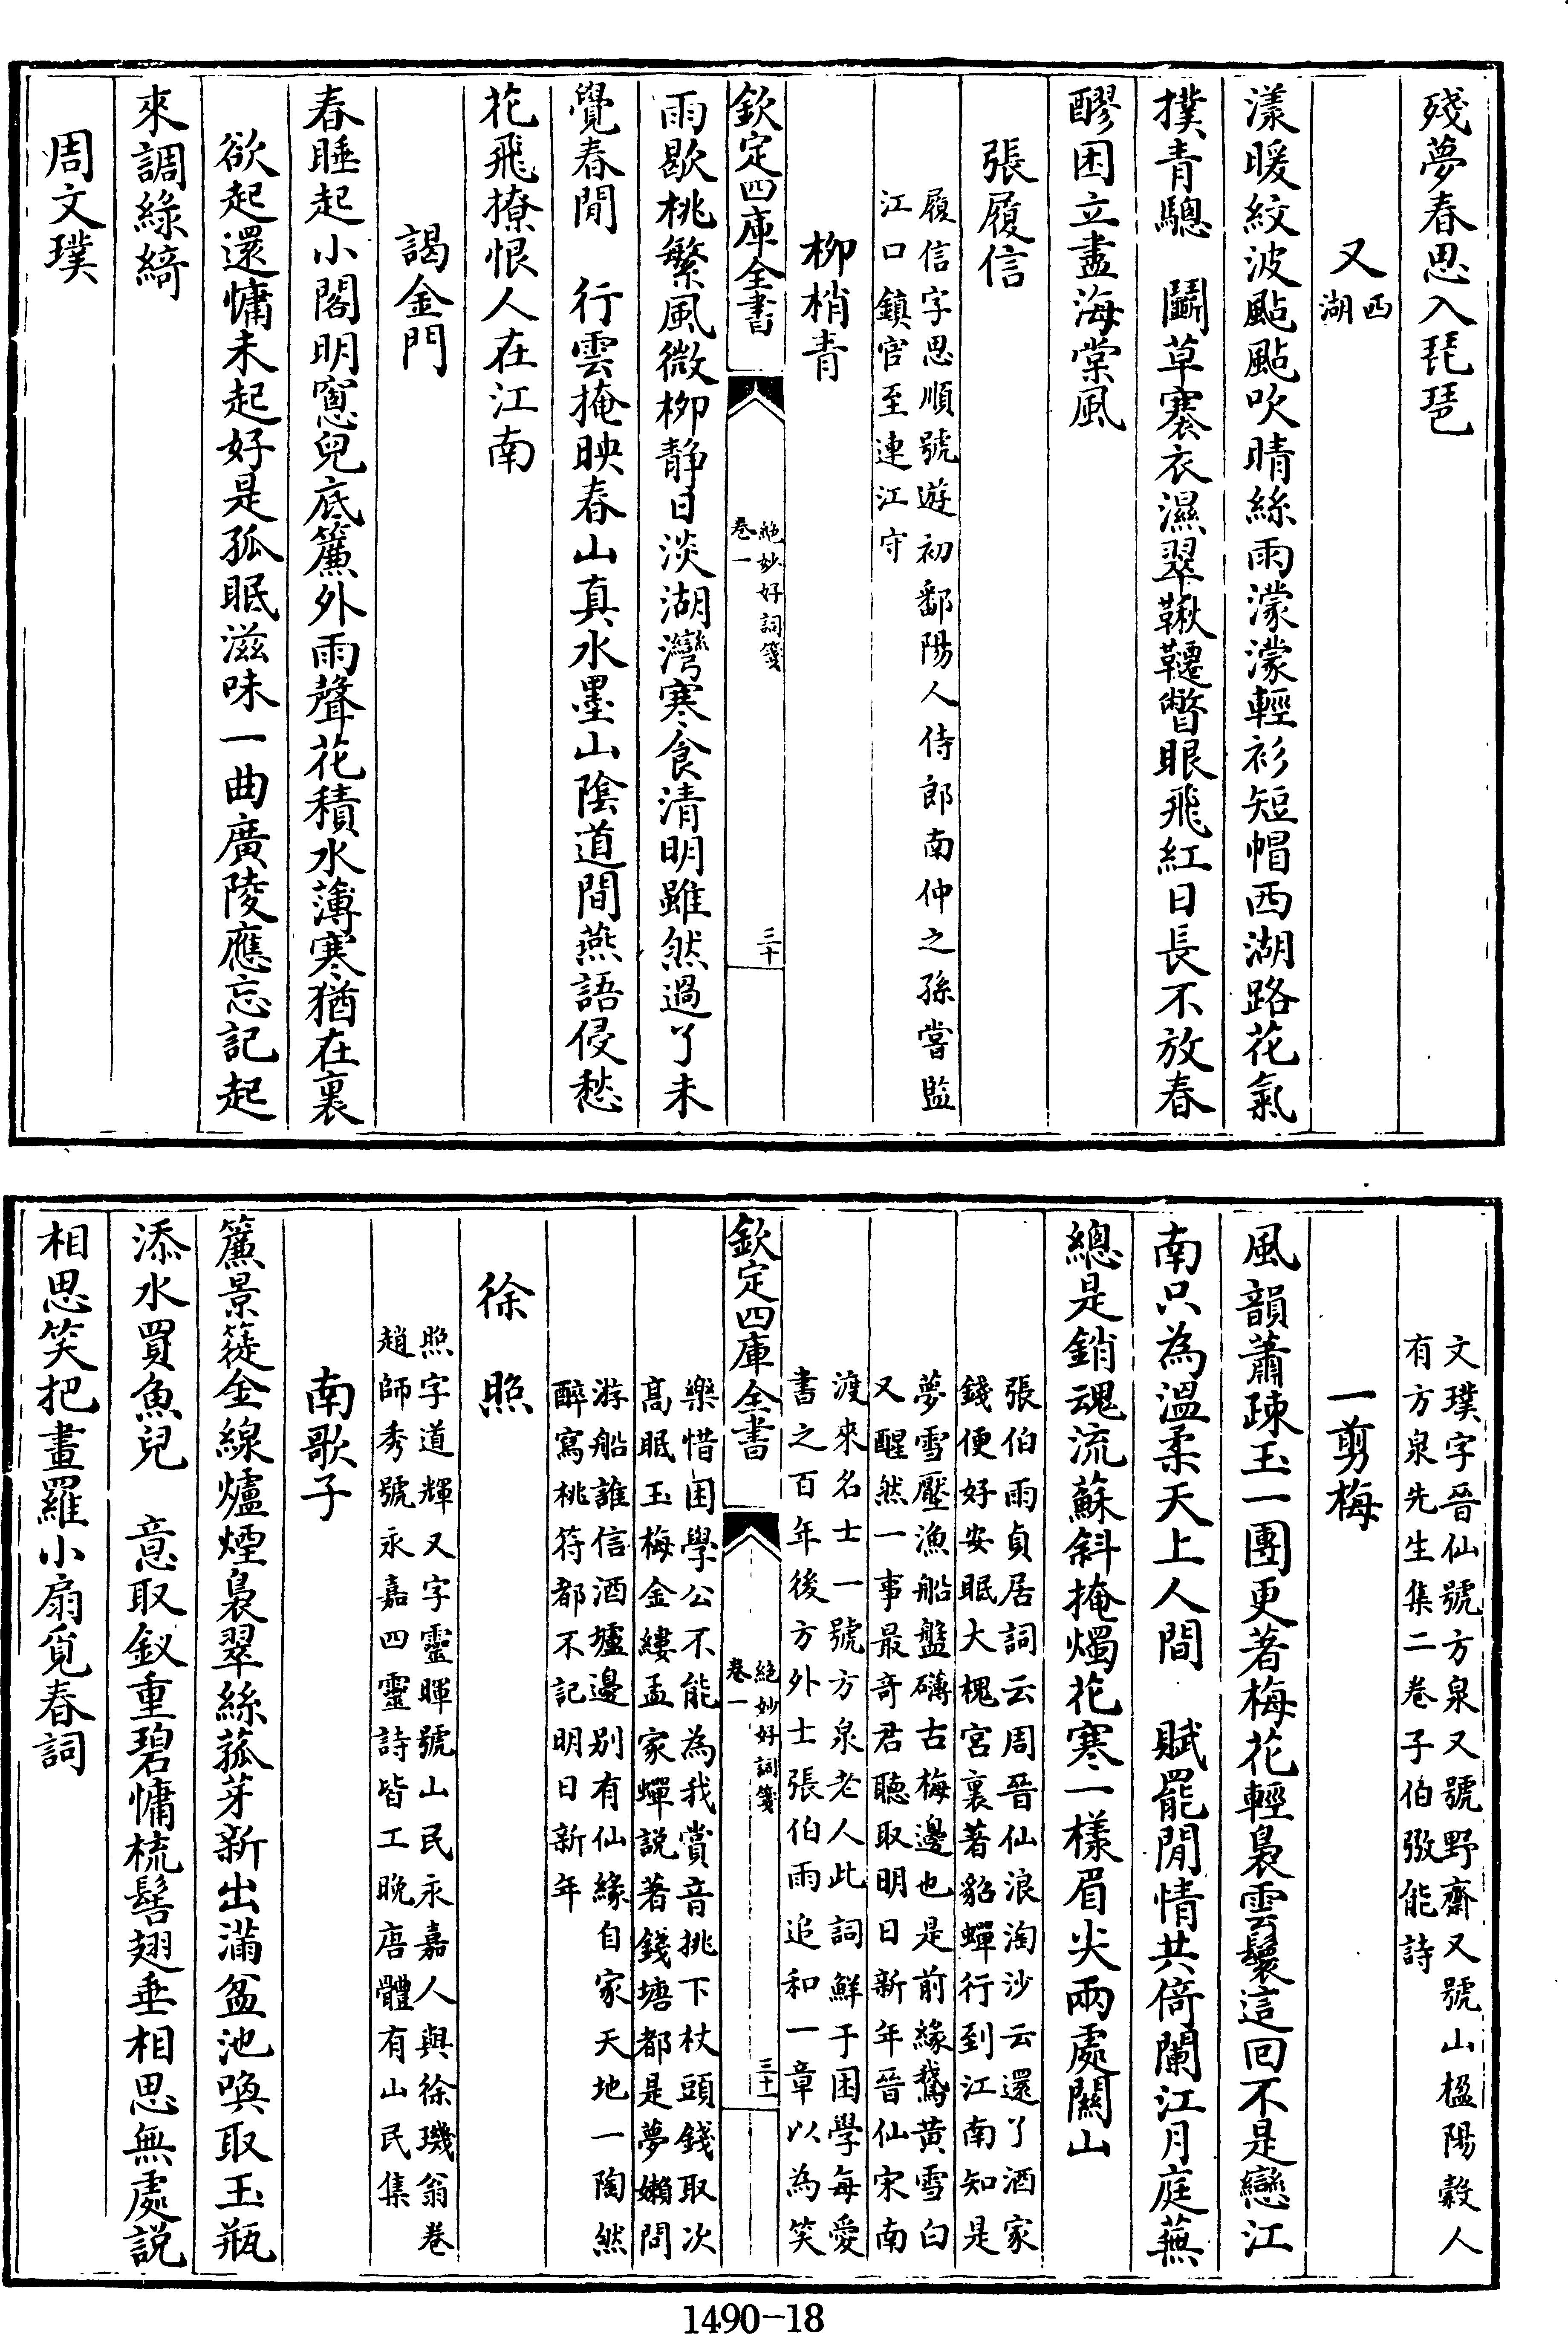 殘夢春思入琵琶
又西湖
漾暖紋波颭颭吹晴絲雨濛濛輕衫短帽西湖路花氣
撲青驄　鬭草褰衣濕翠鞦韆瞥眼飛紅日長不放春
醪困立盡海棠風
張履信
履信字思順號遊初鄱陽人侍郎南仲之孫嘗監
江口鎮官至連江守
柳梢青
雨歇桃繁風微柳靜日淡湖灣寒食清明雖然過了未
覺春閒　行雲掩映春山真水墨山陰道間燕語侵愁
花飛撩恨人在江南
謁金門
春睡起小閣明窻兒底簾外雨聲花積水薄寒猶在裏
欲起還慵未起好是孤眠滋味一曲廣陵應忘記起
來調綠綺
周文璞
欽定四庫全書
絶妙好詞箋
卷一
三十
文璞字晉仙號方泉又號野齋又號山楹陽穀人
有方泉先生集二卷子伯弜能詩
一剪梅
風韻蕭疎玉一團更著梅花輕裊雲鬟這回不是戀江
南只為溫柔天上人間　賦罷閒情共倚闌江月庭蕪
總是銷魂流蘇斜掩燭花寒一樣眉尖兩處關山
張伯雨貞居詞云周晉仙浪淘沙云還了酒家
錢便好安眠大槐宮裏著貂蟬行到江南知是
夢雪壓漁船盤礴古梅邊也是前緣鵞黃雪白
又醒然一事最奇君聽取明日新年晉仙宋南
渡來名士一號方泉老人此詞鮮于困學每愛
書之百年後方外士張伯雨追和一章以為笑
樂惜困學公不能為我賞音挑下杖頭錢取次
高眠玉梅金縷孟家蟬説著錢塘都是夢嬾問
游船誰信酒壚邊别有仙緣自家天地一陶然
醉寫桃符都不記明日新年
徐照
照字道輝又字靈暉號山民永嘉人與徐璣翁卷
趙師秀號永嘉四靈詩皆工晚唐體有山民集
南歌子
簾景簁金線爐煙裊翠絲菰芽新出滿盆池喚取玉瓶
添水買魚兒　意取釵重碧慵梳髻翅垂相思無處説
相思笑把畫羅小扇覓春詞
欽定四庫全書
絶妙好詞箋
卷一
三十一
1490-18